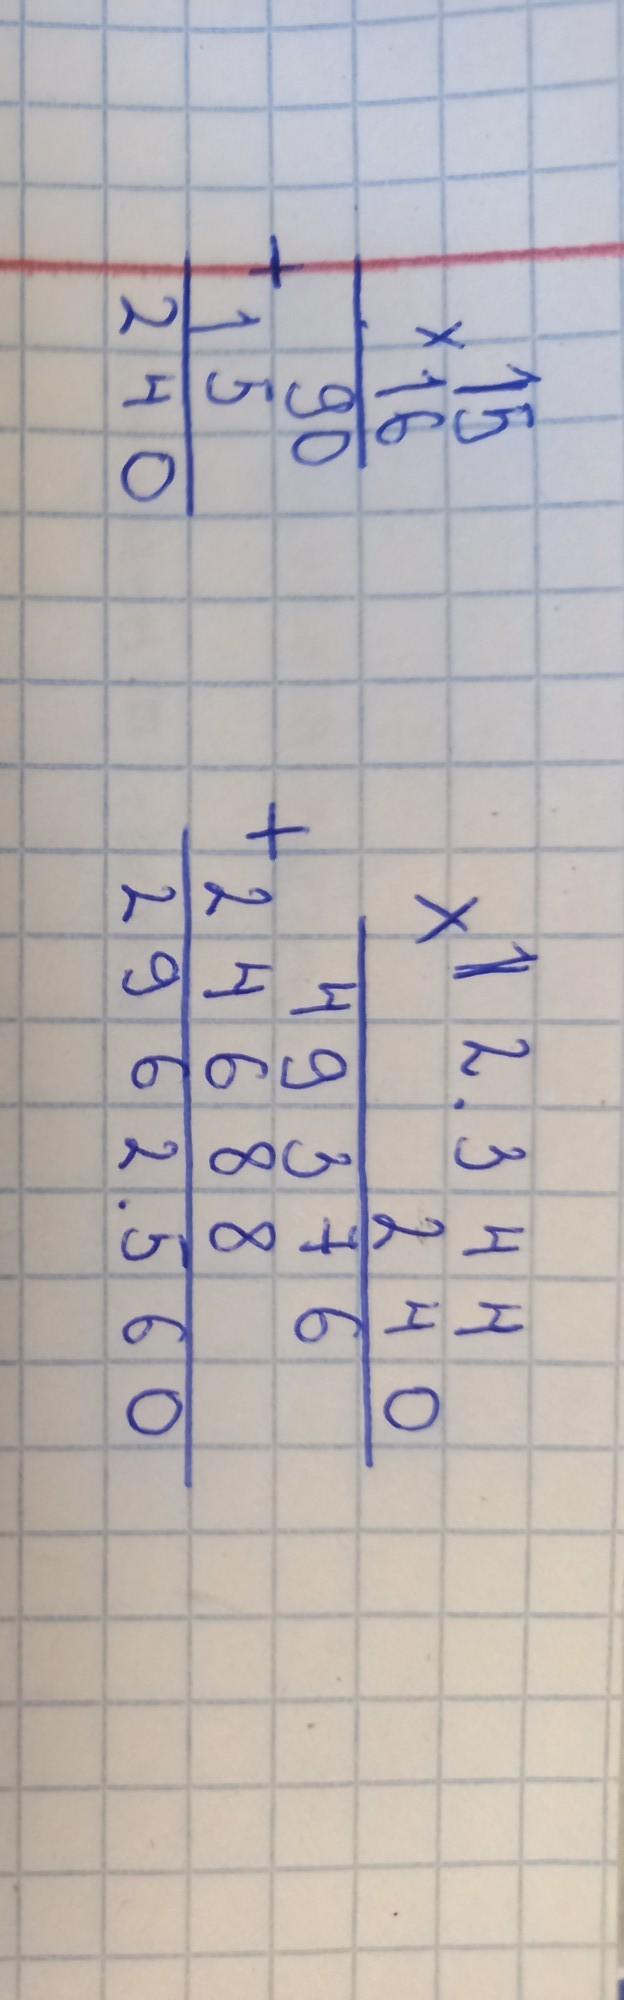 × 15
16
90
+
15
240
× 12.344
240
49376
+
24688
2962.560